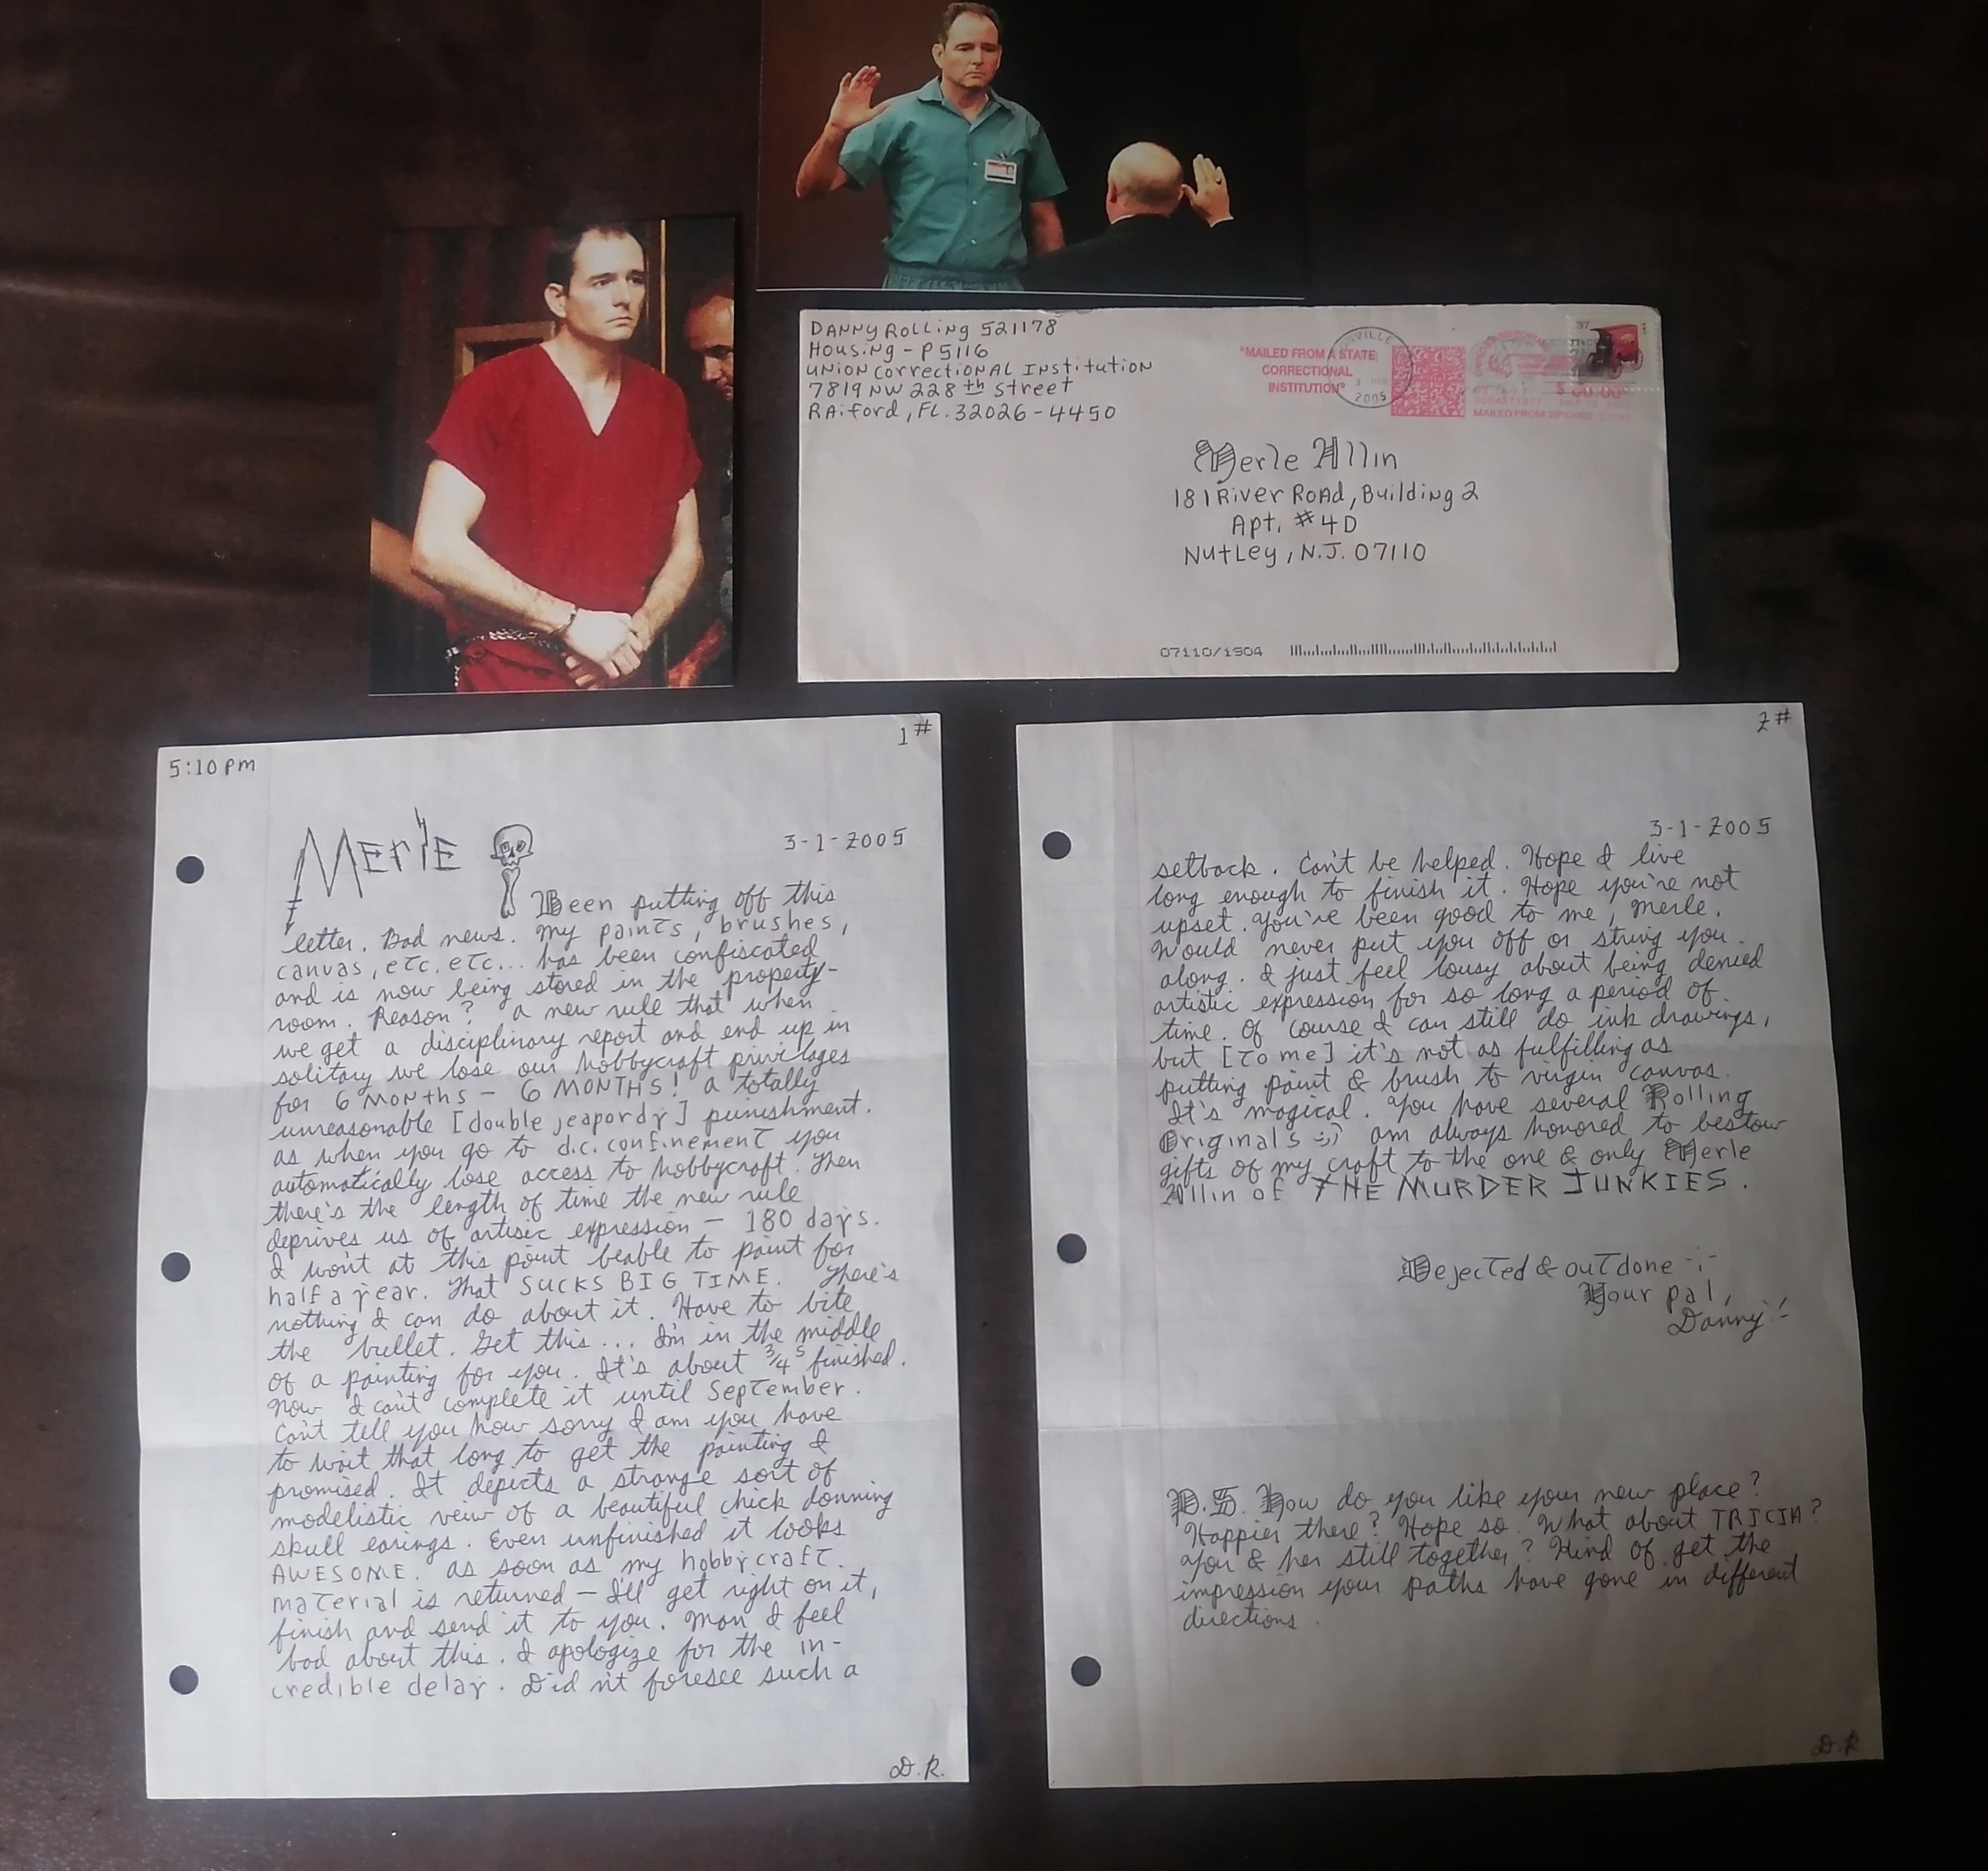 DANNY ROLLING 521178
HOUSING - P5116
UNION CORRECTIONAL INSTITUTION
7819 NW 228 th Street
RAiford, FL. 32026-4450
"MAILED FROM A STATE
CORRECTIONAL
INSTITUTION"
2005
37
MAILED FROM ZIP CODE
Merle Allin
181 River Road, Building 2
Apt. #4D
Nutley, N.J. 07110
07110/1904
1#
5:10 pm
Merle
3-1-2005
Been putting off this
letter. Bad news. My paints, brushes,
canvas, etc. etc... has been confiscated
and is now being stored in the property-
room. Reason? a new rule that when
we get a disciplinary report and end up in
solitary we lose our hobbycraft privilages
for 6 MONTHS - 6 MONTHS! a totally
unreasonable [double jeapordy] punishment.
as when you go to d.c. confinement you
automatically lose access to hobbycraft. Then
there's the length of time the new rule
deprives us of artisic expression - 180 days.
I won't at this point beable to paint for
half a year. That SUCKS BIG TIME. There's
nothing I can do about it. Have to bite
the bullet. Get this... I'm in the middle
of a painting for you. It's about 3/4s finished.
Now I can't complete it until September.
Can't tell you how sorry I am you have
to wait that long to get the painting I
promised. It depicts a strange sort of
modelistic veiw of a beautiful chick donning
skull earings. Even unfinished it looks
AWESOME. as soon as my hobbycraft.
material is returned - I'll get right on it,
finish and send it to you. Man I feel
bad about this. I apologize for the in-
credible delay. Did n't foresee such a
D.R.
2#
3-1-2005
setback. Can't be helped. Hope I live
long enough to finish it. Hope you're not
upset. You've been good to me, Merle.
Would never put you off or string you
along. I just feel lousy about being denied
artistic expression for so long a period of
time. Of course I can still do ink drawings,
but [to me] it's not as fulfilling as
putting paint & brush to virgin canvas.
It's magical. You have several Rolling
Originals :) am always honored to bestow
gifts of my craft to the one & only Merle
Allin of THE MURDER JUNKIES.
Dejected & outdone -:-
Your pal,
Danny!!
P.S. How do you like your new place?
Happier there? Hope so. What about TRICIA?
You & her still together? Kind of get the
impression your paths have gone in different
directions.
D.R.